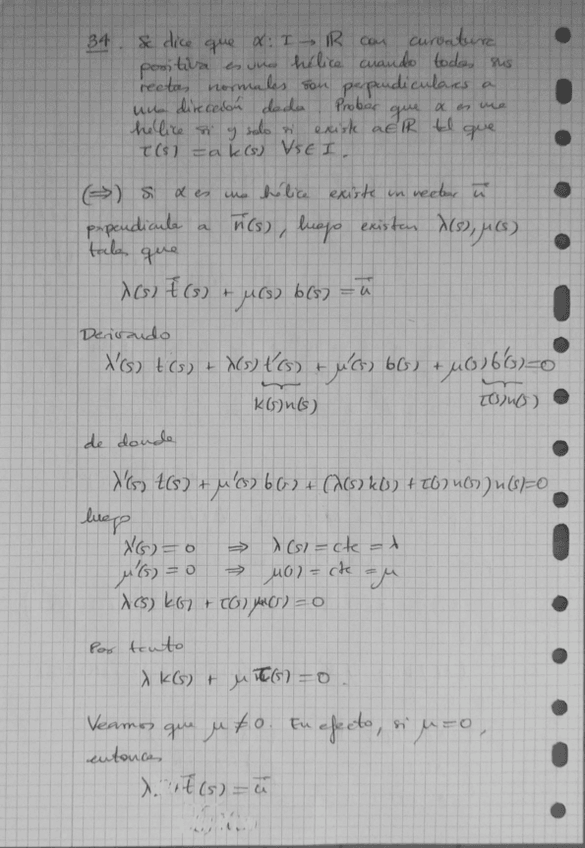 34. Se dice que α: I → ℝ con curvatura
positiva es una hélice cuando todas sus
rectas normales son perpendiculares a
una dirección dada. Probar que α es una
hélice si y solo si existe a∈ℝ tal que
τ(s) = a k(s) ∀s∈I.
(⇒) Si α es una hélice existe un vector u⃗
perpendicular a n⃗(s), luego existen λ(s), μ(s)
tales que
λ(s) t⃗(s) + μ(s) b(s) = u⃗
Derivando
λ'(s) t(s) + λ(s) t'(s) + μ'(s) b(s) + μ(s) b'(s) = 0
k(s)n(s) τ(s)n(s)
de donde
λ'(s) t(s) + μ'(s) b(s) + (λ(s) k(s) + τ(s) μ(s)) n(s) = 0
luego
λ'(s) = 0 ⇒ λ(s) = cte = λ
μ'(s) = 0 ⇒ μ(s) = cte = μ
λ(s) k(s) + τ(s) μ(s) = 0
Por tanto
λ k(s) + μ τ(s) = 0.
Veamos que μ ≠ 0. En efecto, si μ = 0,
entonces
λ t⃗(s) = u⃗